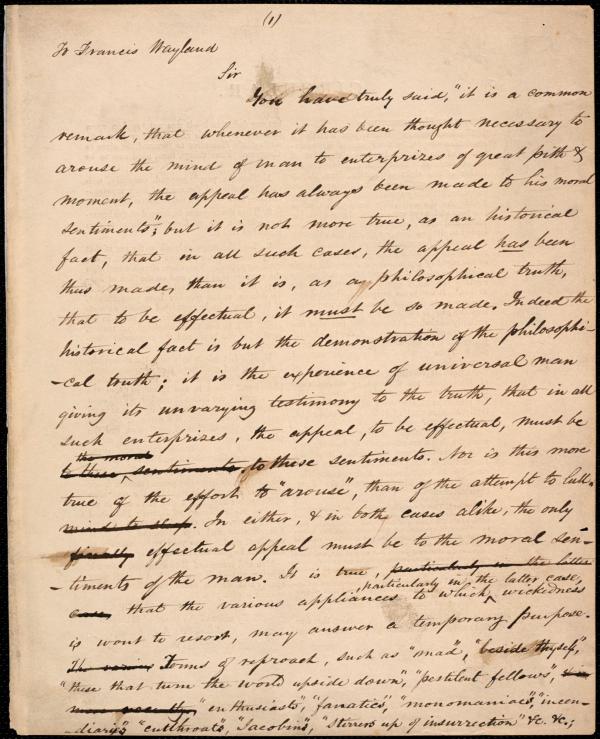 (1)
To Francis Wayland
Sir
You have truly said, "it is a common
remark, that whenever it has been thought necessary to
arouse the mind of man to enterprizes of great pith &
moment, the appeal has always been made to his moral
sentiments"; but it is not more true, as an historical
fact, that in all such cases, the appeal has been
thus made, than it is, as a philosophical truth,
that to be effectual, it must be so made. Indeed the
historical fact is but the demonstration of the philosophi-
-cal truth; it is the experience of universal man
giving its unvarying testimony to the truth, that in all
such enterprizes, the appeal, to be effectual, must be
the moral
to these sentiments, to these sentiments. Nor is this more
true of the effort to "arouse", than of the attempt to lull
minds to sleep. In either, & in both cases alike, the only
effectual appeal must be to the moral sen-
-timents of the man. It is true, particularly in the latter
particularly in the latter case,
case, that the various appliances to which, wickedness
is wont to resort, may answer a temporary purpose.
Terms of reproach, such as "mad", "beside thyself",
"these that turn the world upside down", "pestilent fellows",
"enthusiasts", "fanatics", "monomaniacs", "incen-
-diarys", "cutthroats", "Jacobins", "Stirrers up of insurrection" &c. &c.;